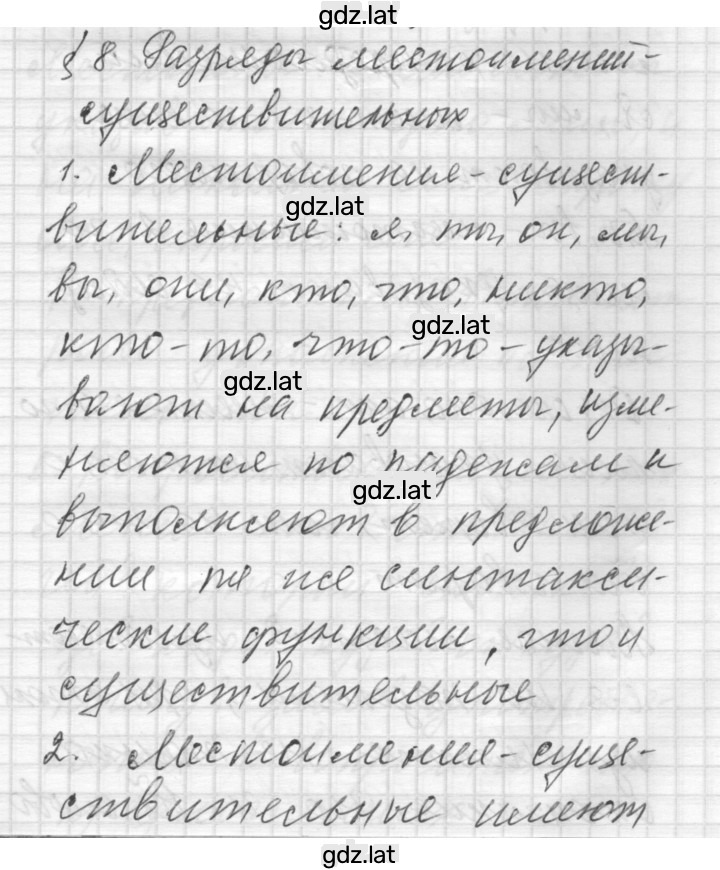 gdz.lat
§ 8. Разряды местоимений-
существительных
1. Местоимения-сущест-
gdz.lat
вительные: я, ты, он, мы,
вы, они, кто, что, никто,
gdz.lat
кто-то, что-то - указы-
gdz.lat
вают на предметы, изме-
няются по падежам и
gdz.lat
выполняют в предложе-
нии те же синтакси-
ческие функции, что и
существительные
2. Местоимения-суще-
ствительные имеют
gdz.lat